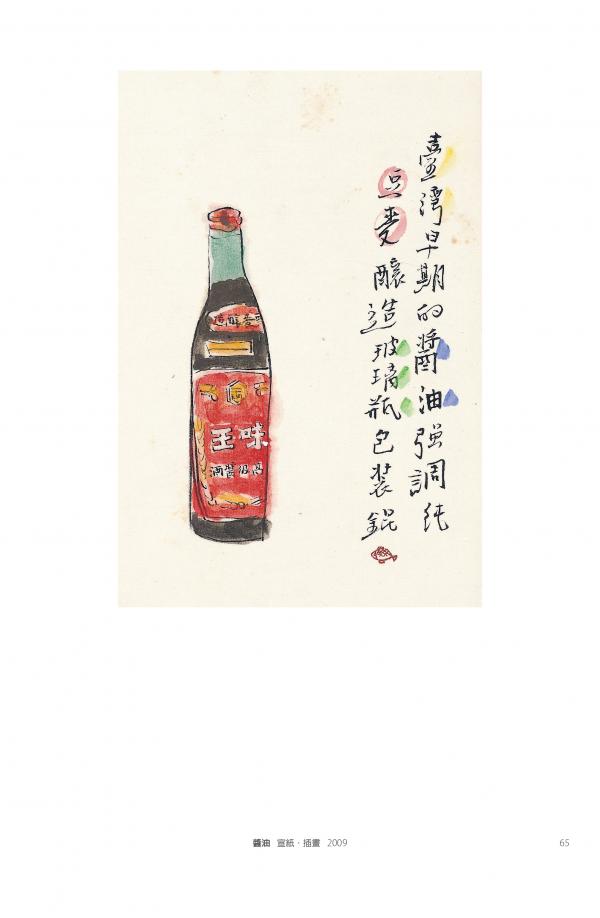 臺灣早期的醬油强調純
豆麥釀造玻璃瓶包裝錕
味王
醬油 宣紙·插畫 2009
65